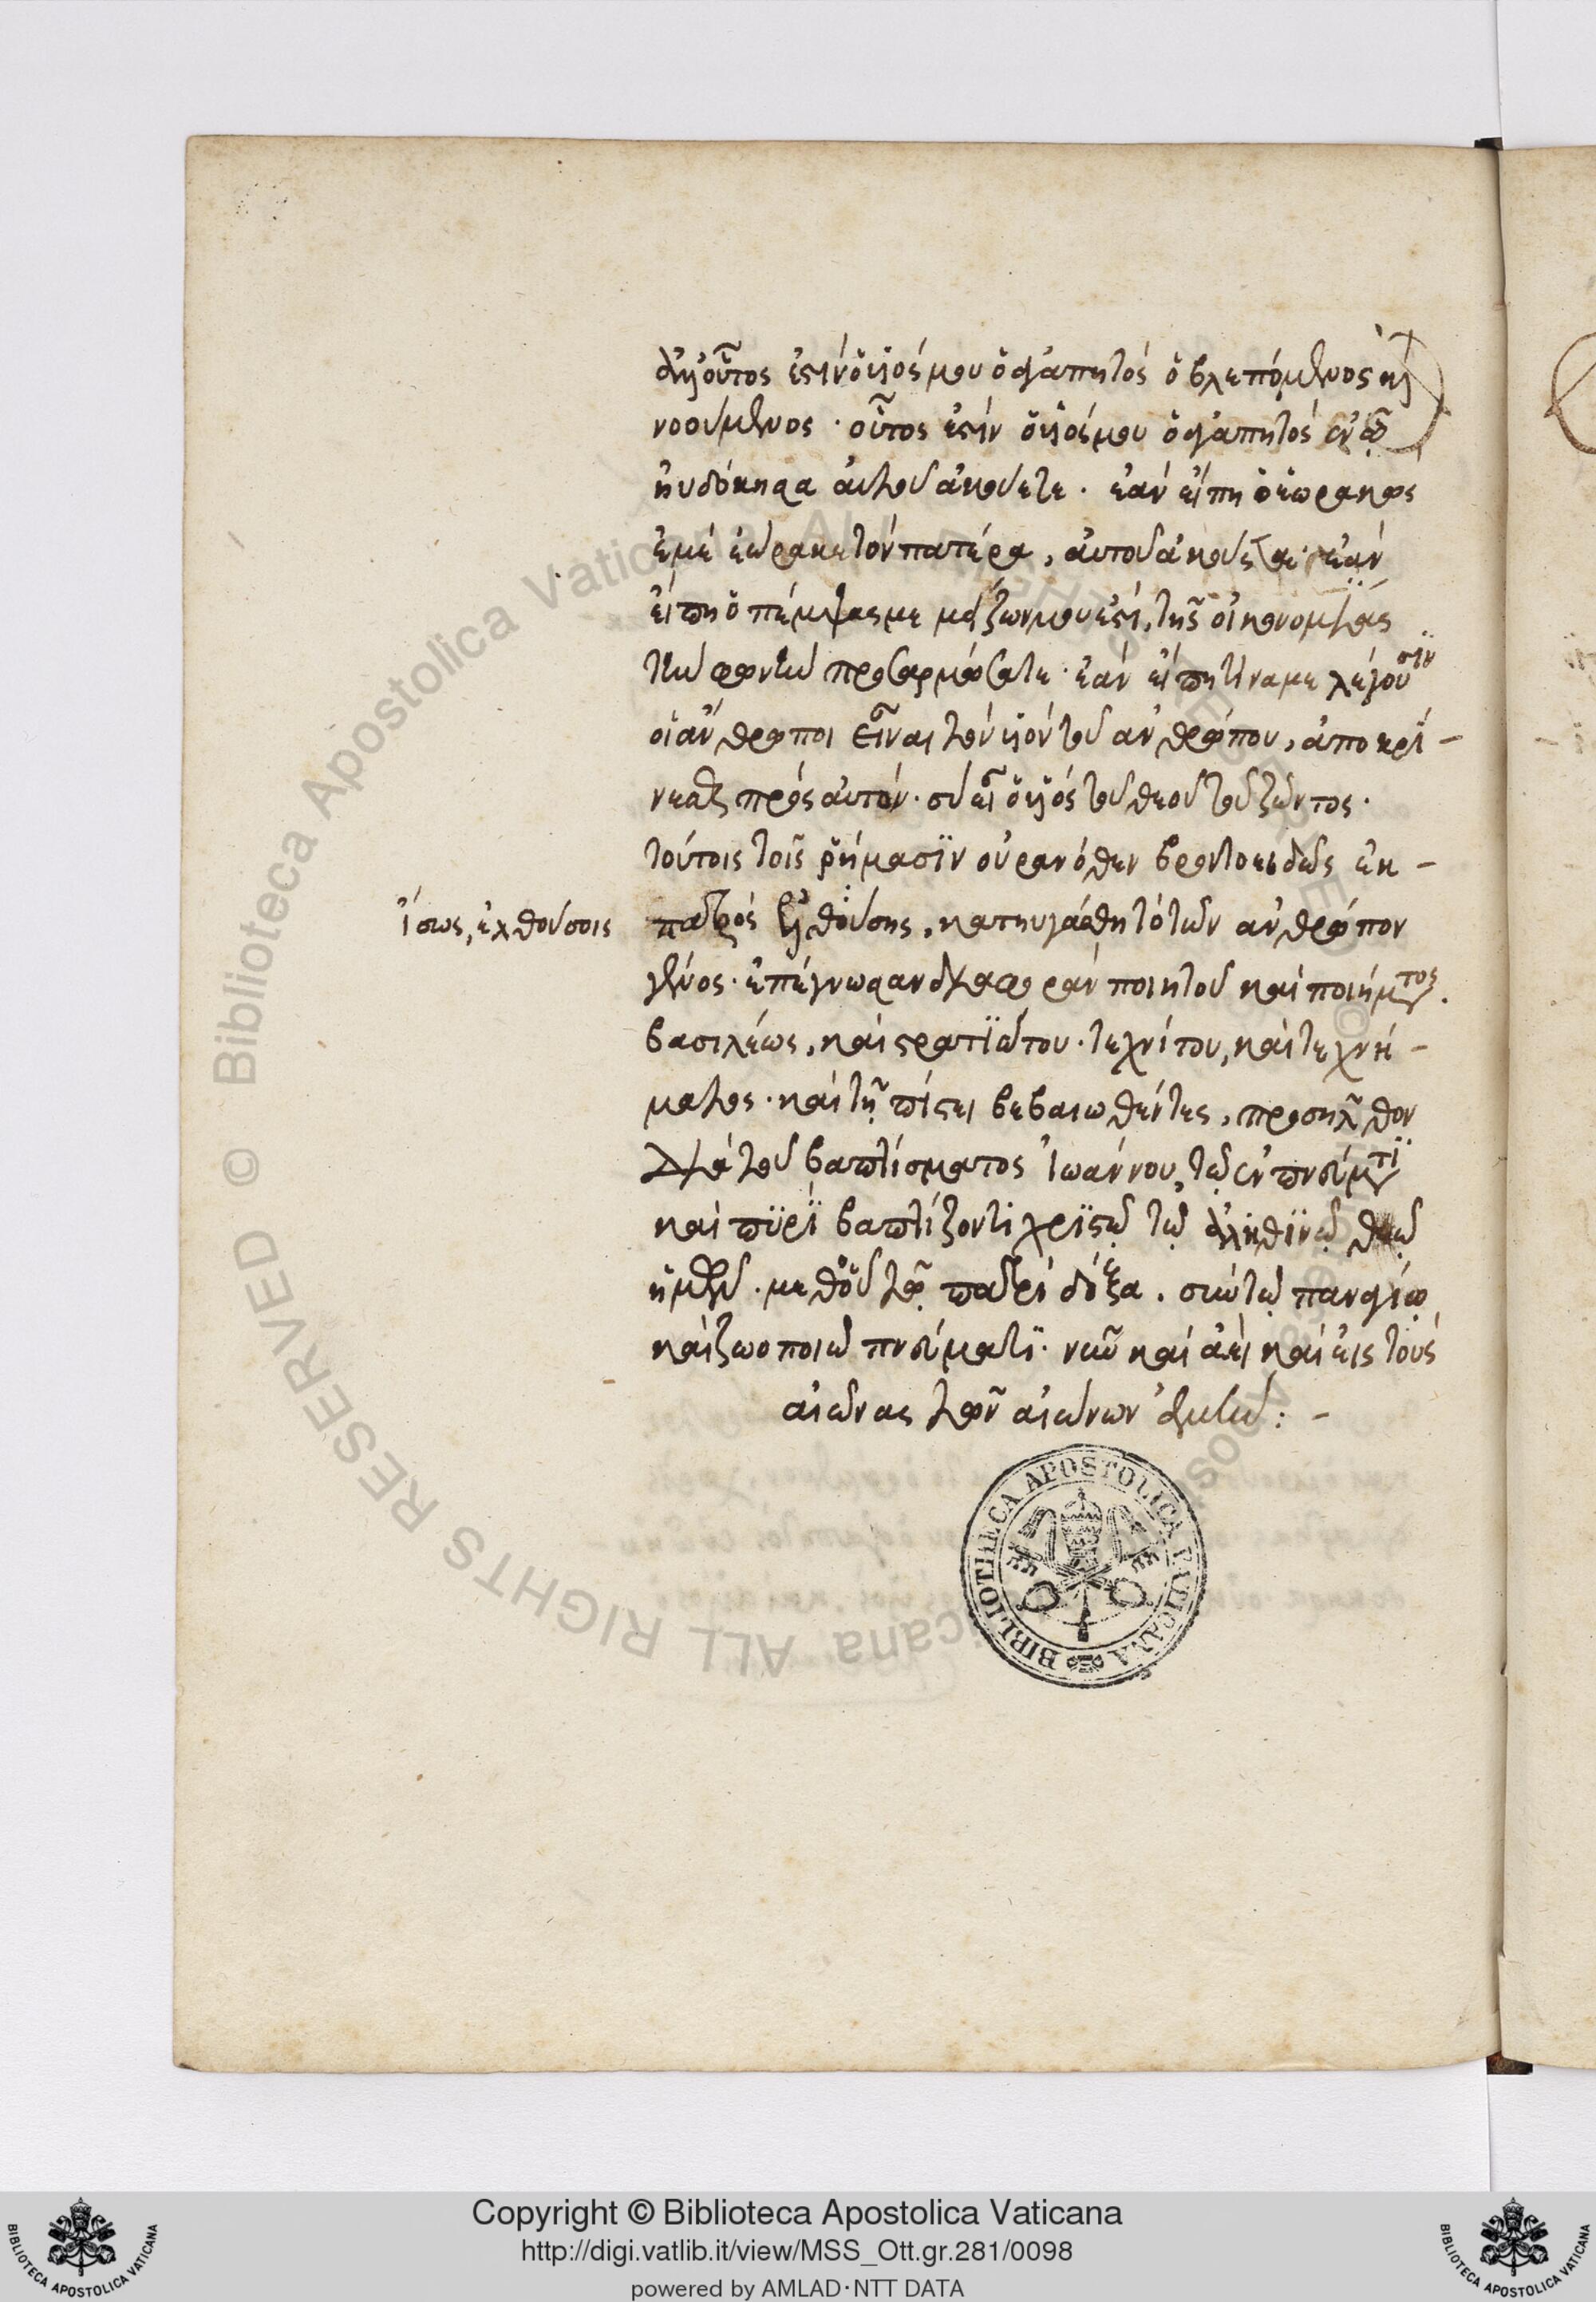 ἀλλ' οὗτός ἐστιν ὁ υἱός μου ὁ ἀγαπητός ὁ βλεπόμενος καὶ
νοούμενος · οὗτος ἐστὶν ὁ υἱός μου ὁ ἀγαπητός ἐν ᾧ
ηὐδόκησα αὐτοῦ ἀκούετε · ἐάν εἴπη ὁ ἑωρακώς
ἐμέ ἑώρακε τόν πατέρα, αὐτοῦ ἀκούεται · ἐάν
εἴπη ὁ πέμψας με μείζων μου ἐστί, τῆς οἰκονομίας
τὴν φωνὴν προσαρμόσατε · ἐάν εἴπη τίνα με λέγουσιν
οἱ ἄνθρωποι εἶναι τόν υἱόν τοῦ ἀνθρώπου, ἀποκρί -
νεσθε πρός αὐτόν · σύ εἶ ὁ υἱός τοῦ θεοῦ τοῦ ζῶντος ·
τούτοις τοῖς ῥήμασϊν οὐρανόθεν βροντοειδῶς ἐκ -
ἴσως, ἐχθούσοις
πατρός ἐλθούσης, κατηυγάσθη τό τῶν ἀνθρώπον
γένος · ἐπέγνωσαν διαφοράν ποιητοῦ καί ποιήματος.
βασιλέως, καί στρατϊώτου · τεχνίτου, καί τεχνή -
ματος · καί τῇ πίστει βεβαιωθέντες, προσῆλθον
διά τοῦ βαπτίσματος Ἰωάννου, τῷ ἐν πνεύματϊ
καί πϋρΐ βαπτίζοντϊ χρϊστῷ τῷ ἀληθϊνῷ θεῷ
ἡμῶν · μεθ' οὗ τῷ πατρί δόξα. σύν τῷ παναγίῳ
καί ζωοποιῷ πνεύματϊ · νῦν καί ἀεί καί εἰς τούς
αἰῶνας τῶν αἰώνων ἀμήν : -
BIBLIOTHECA APOSTOLICA VATICANA
© Biblioteca Apostolica Vaticana ALL RIGHTS RESERVED
Copyright © Biblioteca Apostolica Vaticana
http://digi.vatlib.it/view/MSS_Ott.gr.281/0098
powered by AMLAD·NTT DATA
BIBLIOTECA APOSTOLICA VATICANA
BIBLIOTECA APOSTOLICA VATICANA